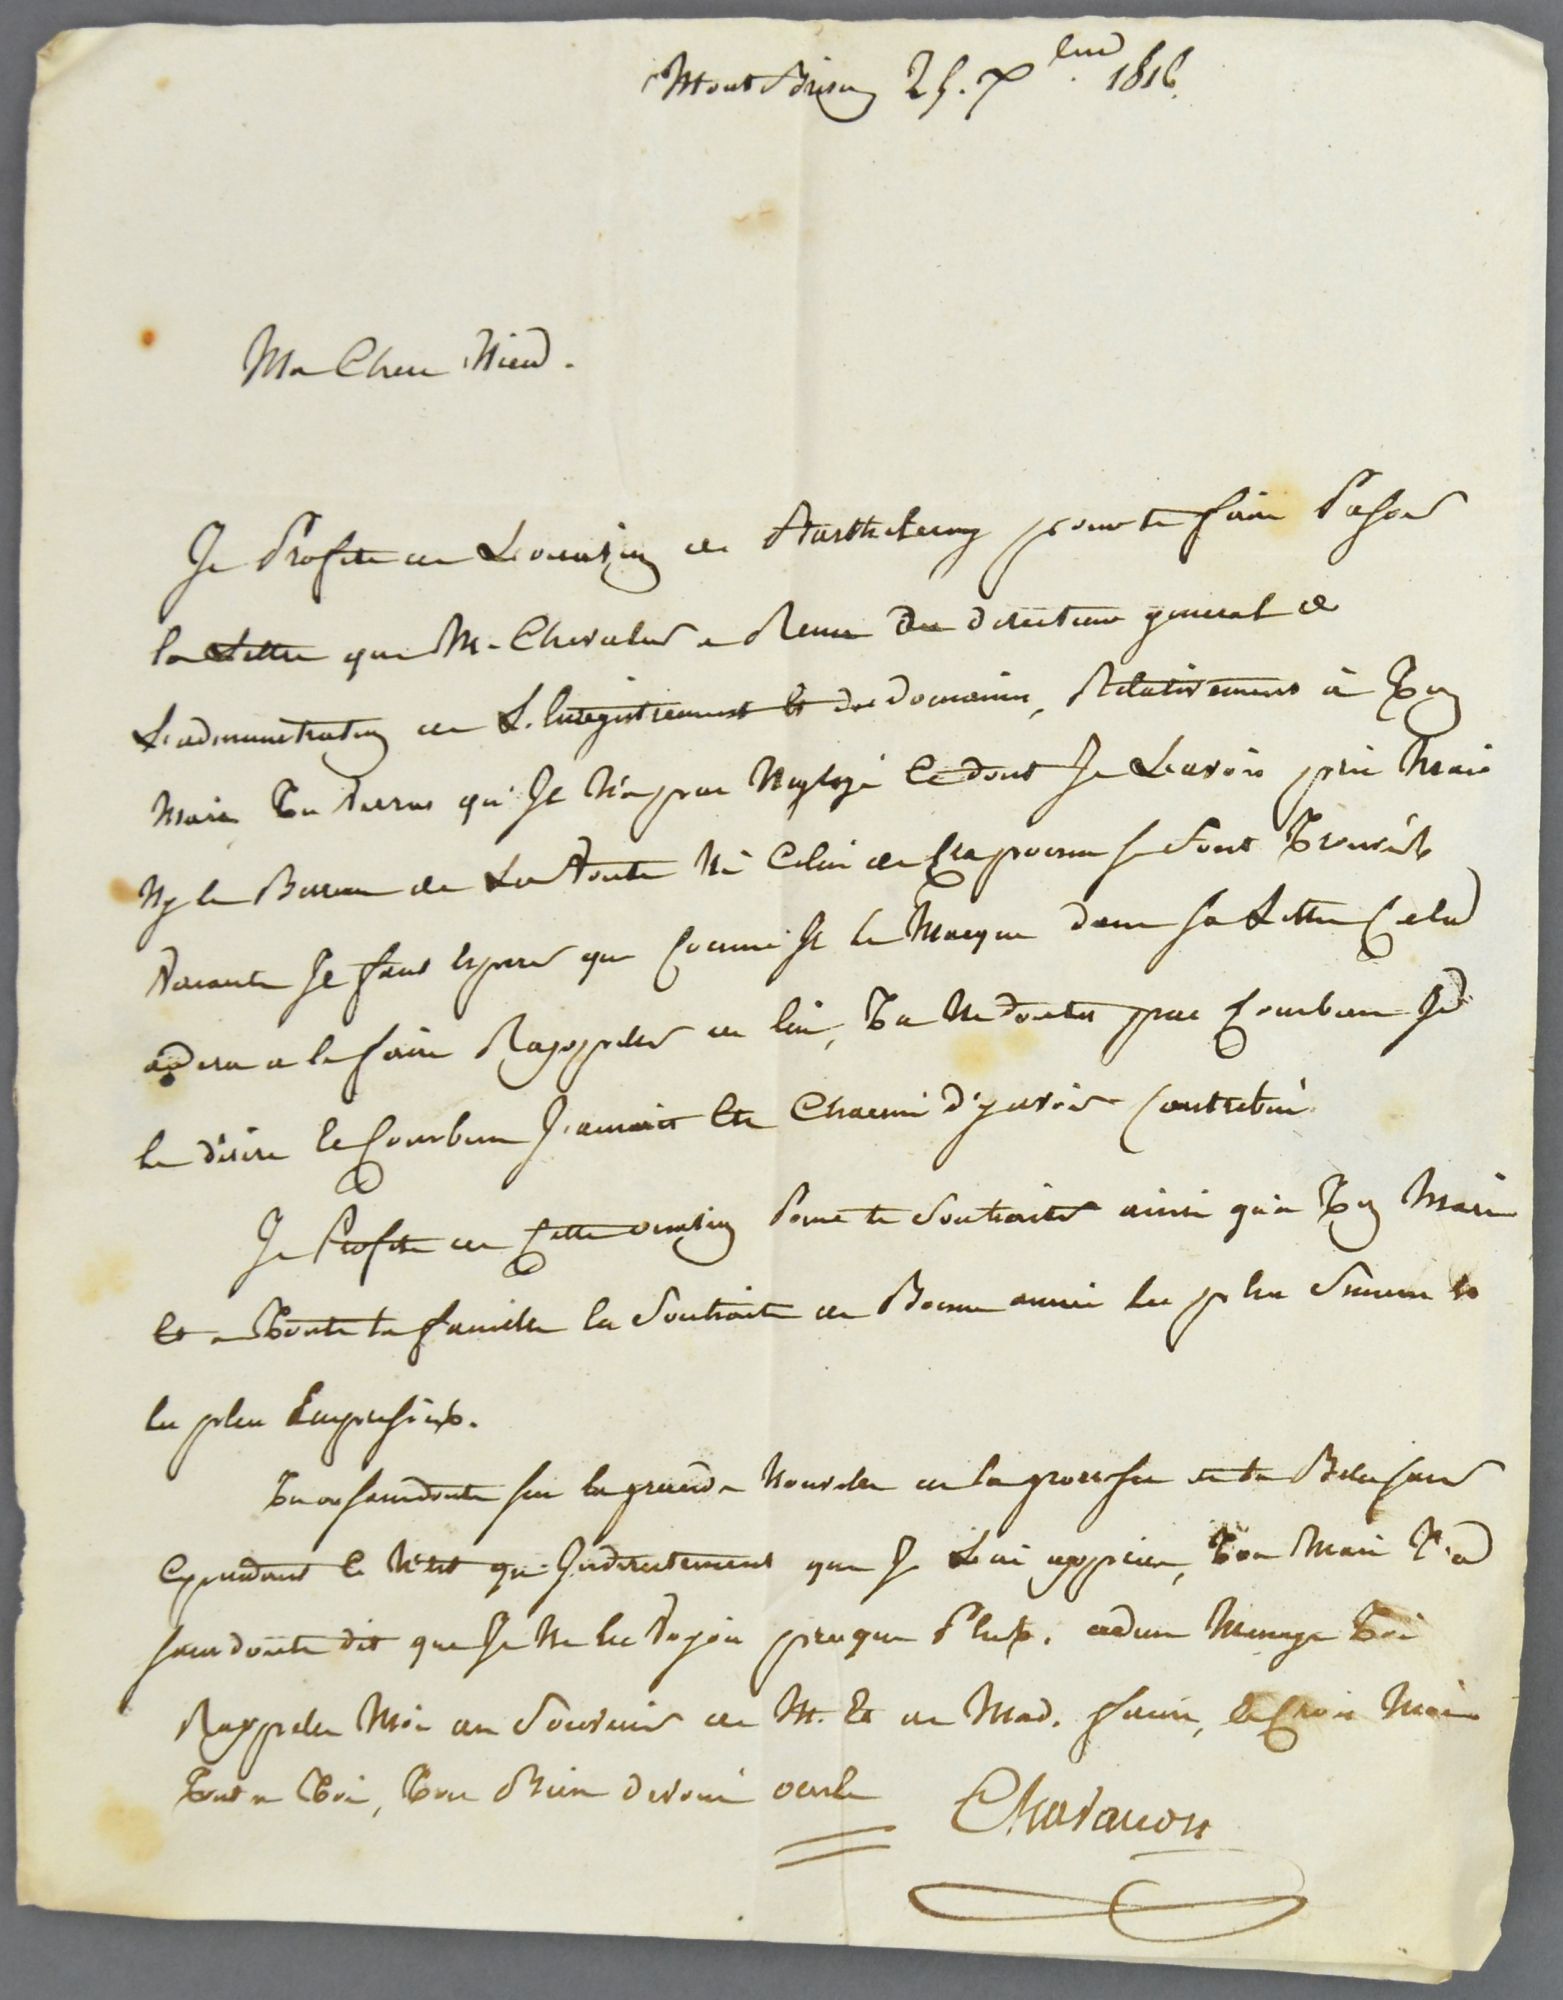 MontBrison 25. Xbre 1816
Ma Chere Niece.
Je Profite de L'occasion de Barthelemy pour te faire Passer
la Lettre que M. Chevalier a Recu du directeur general de
L'administration de L'Enregistrement et des domaines, Relativement à Ton
Mari, Tu Verras qu'Il N'a pas Negligé ce dont Je L'avois prié Mais
Ny le Bureau de La Voute Ni Celui de Craponne se sont Trouvés
Vacants Il faut Esperer que Comme Il le Marque dans sa Lettre Cela
aidera a le faire Rappeller de lui, Tu Ne doutes pas Combien Je
le désire et Combien J'aurois Eté Charmé d'y avoir Contribué
Je Profite de Cette occasion Pour te Souhaiter ainsi qu'à Ton Mari
Et a Toute ta famille la Souhaite de Bonne année les plus Sinceres et
les plus Empressées.
Tu as sans doute su la grande Nouvelle de la grossesse de ta Belle soeur
Cependant ce N'est qu'Indirectement que Je L'ai apprise, Ton Mari T'a
sans doute dit que Je Ne les Voyois presque Plus. adieu Menage Toi
Rappelle Moi au Souvenir de M. Et de Mad. faure, et Crois Moi
Tout a Toi, Ton Bien devoué oncle Chavanon